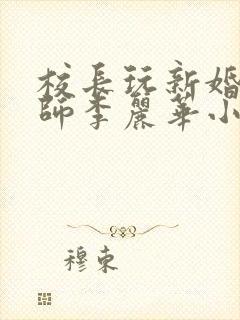 校長玩新婚
師李麗華小
穆束